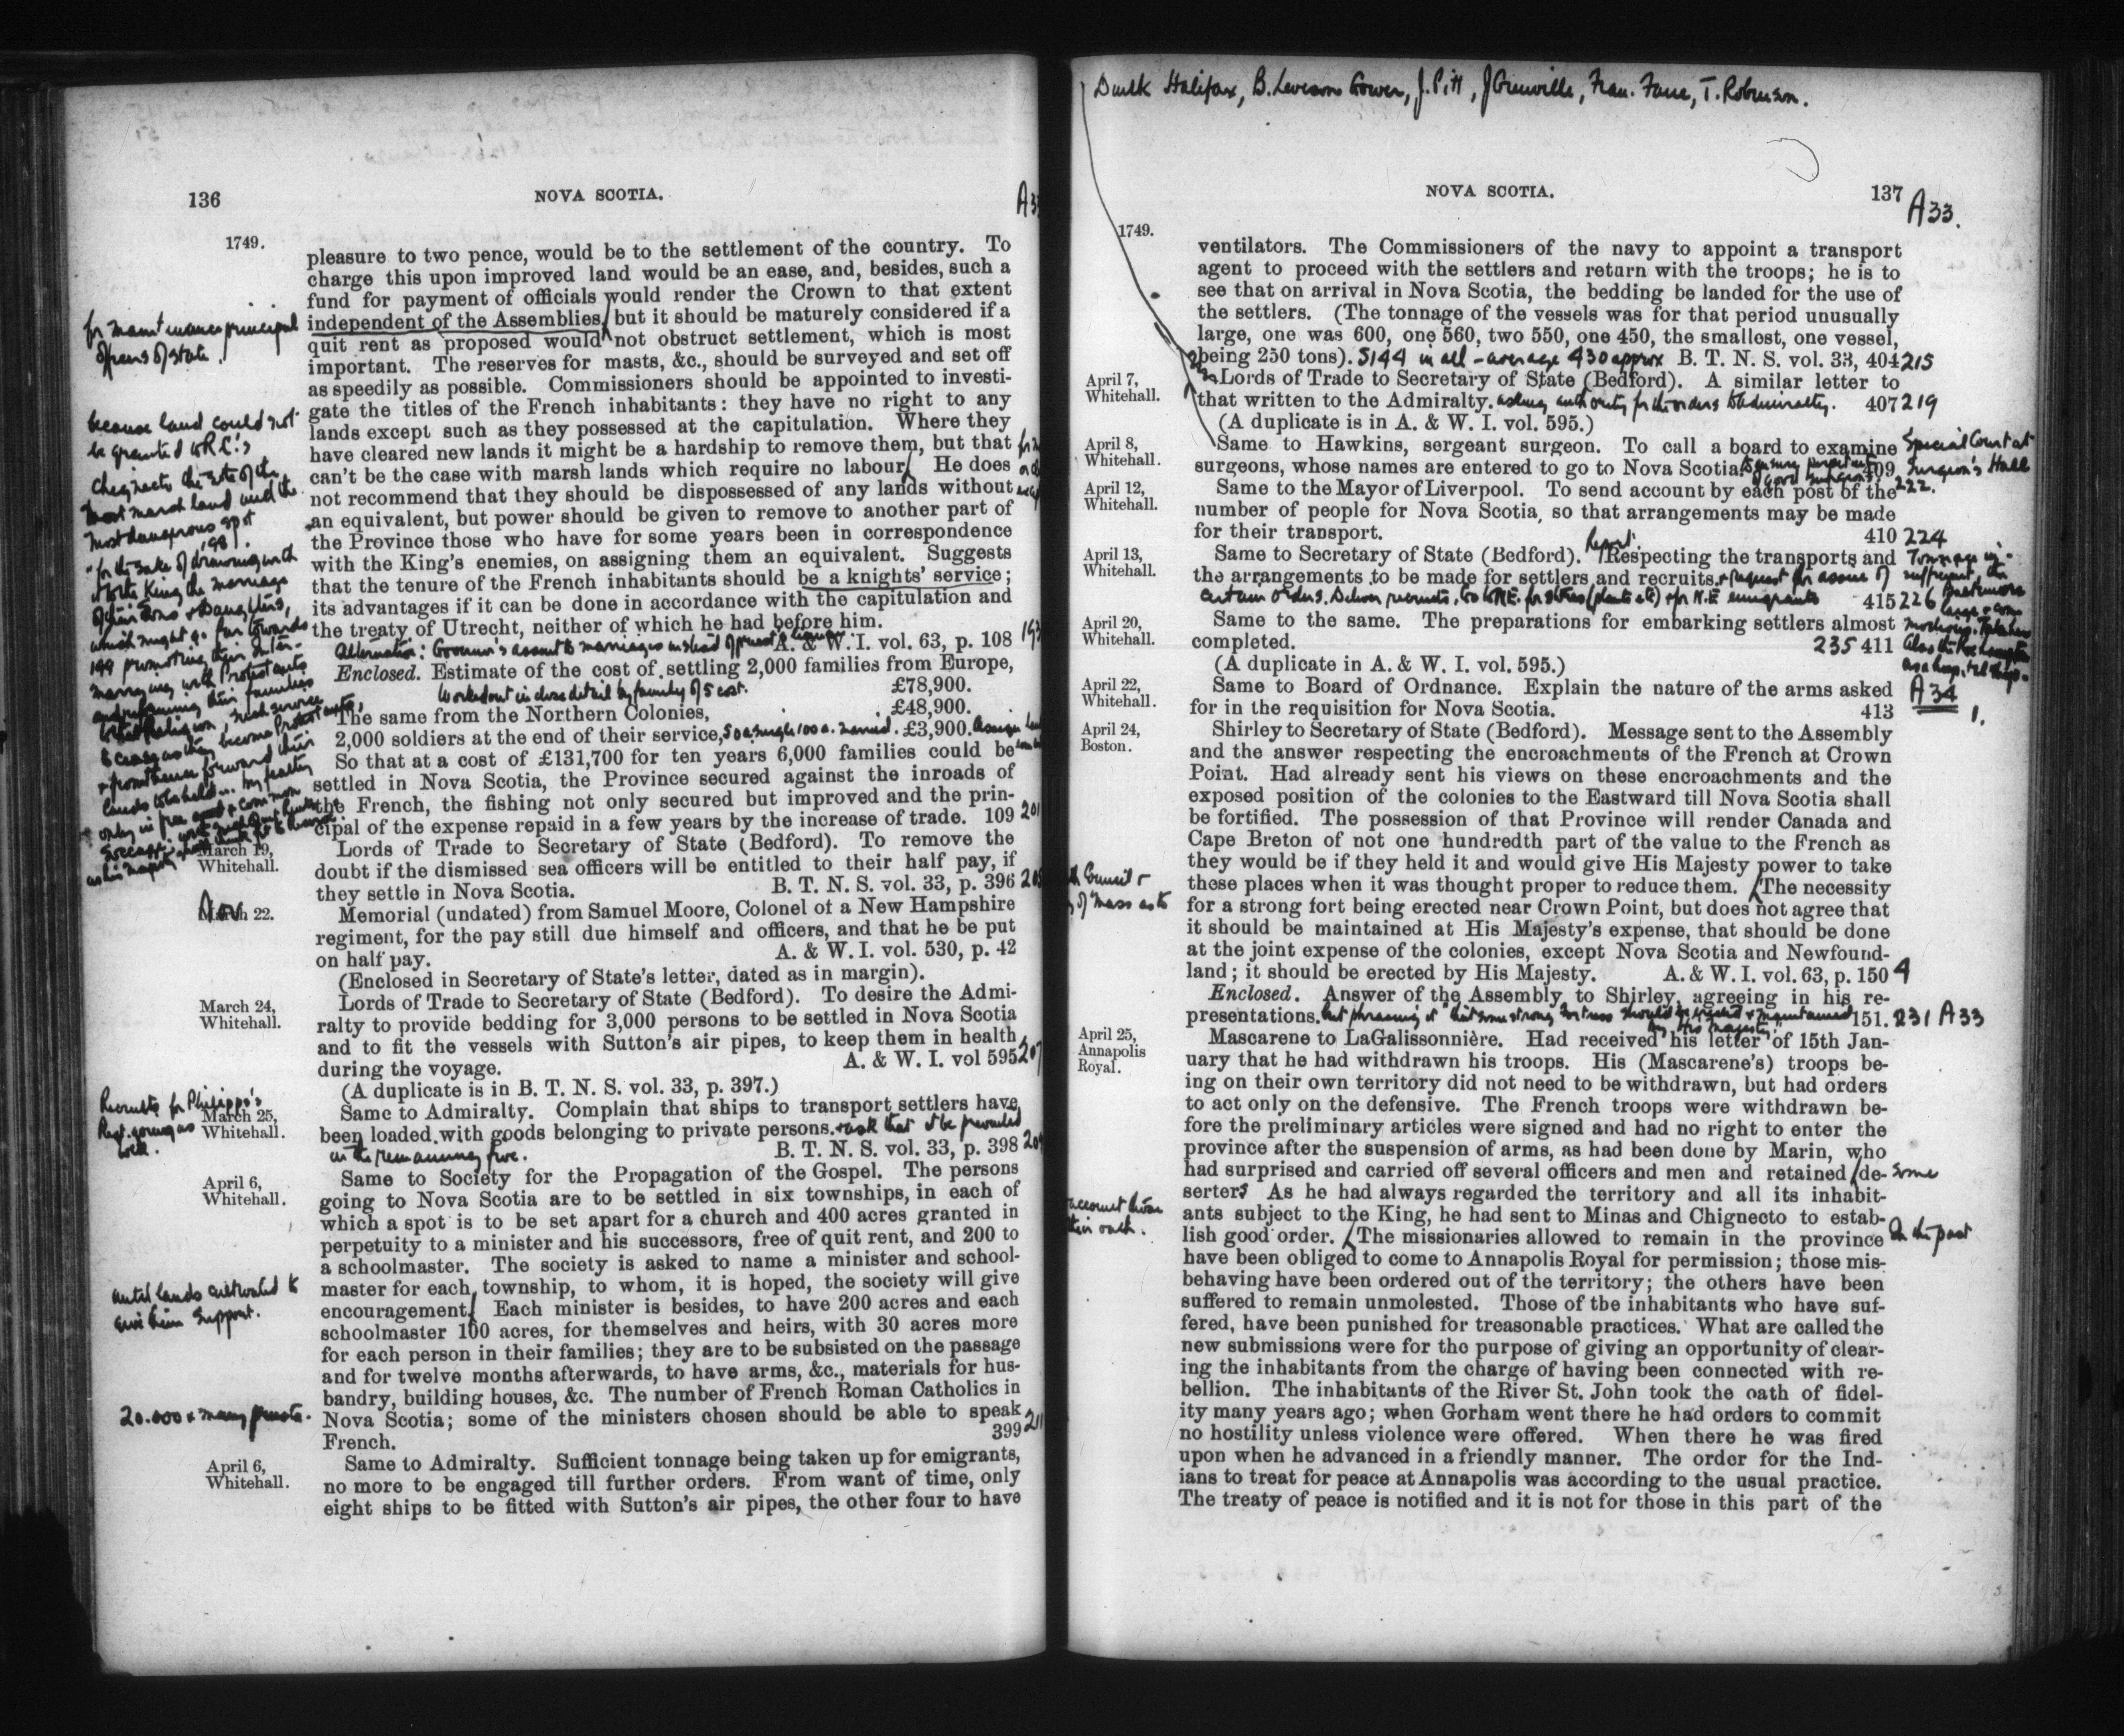 136
NOVA SCOTIA.
1749.
pleasure to two pence, would be to the settlement of the country. To
charge this upon improved land would be an ease, and, besides, such a
fund for payment of officials would render the Crown to that extent
independent of the Assemblies, but it should be maturely considered if a
quit rent as proposed would not obstruct settlement, which is most
important. The reserves for masts, &c., should be surveyed and set off
as speedily as possible. Commissioners should be appointed to investi-
gate the titles of the French inhabitants: they have no right to any
lands except such as they possessed at the capitulation. Where they
have cleared new lands it might be a hardship to remove them, but that
can't be the case with marsh lands which require no labour. He does
not recommend that they should be dispossessed of any lands without
an equivalent, but power should be given to remove to another part of
the Province those who have for some years been in correspondence
with the King's enemies, on assigning them an equivalent. Suggests
that the tenure of the French inhabitants should be a knights' service;
its advantages if it can be done in accordance with the capitulation and
the treaty of Utrecht, neither of which he had before him.
A. & W. I. vol. 63, p. 108
Alternative: Governor's assent to marriages instead of
Enclosed. Estimate of the cost of settling 2,000 families from Europe,
£78,900.
Worked out in close detail by family of 5 cost.
The same from the Northern Colonies, £48,900.
2,000 soldiers at the end of their service, £3,900.
So that at a cost of £131,700 for ten years 6,000 families could be
settled in Nova Scotia, the Province secured against the inroads of
the French, the fishing not only secured but improved and the prin-
cipal of the expense repaid in a few years by the increase of trade. 109 201
March 19,
Whitehall.
Lords of Trade to Secretary of State (Bedford). To remove the
doubt if the dismissed sea officers will be entitled to their half pay, if
they settle in Nova Scotia. B. T. N. S. vol. 33, p. 396
March 22.
Memorial (undated) from Samuel Moore, Colonel of a New Hampshire
regiment, for the pay still due himself and officers, and that he be put
on half pay. A. & W. I. vol. 530, p. 42
(Enclosed in Secretary of State's letter, dated as in margin).
March 24,
Whitehall.
Lords of Trade to Secretary of State (Bedford). To desire the Admi-
ralty to provide bedding for 3,000 persons to be settled in Nova Scotia
and to fit the vessels with Sutton's air pipes, to keep them in health
during the voyage. A. & W. I. vol 595 207
(A duplicate is in B. T. N. S. vol. 33, p. 397.)
March 25,
Whitehall.
Same to Admiralty. Complain that ships to transport settlers have
been loaded with goods belonging to private persons. & ask that it be prevented
in the remaining five. B. T. N. S. vol. 33, p. 398
April 6,
Whitehall.
Same to Society for the Propagation of the Gospel. The persons
going to Nova Scotia are to be settled in six townships, in each of
which a spot is to be set apart for a church and 400 acres granted in
perpetuity to a minister and his successors, free of quit rent, and 200 to
a schoolmaster. The society is asked to name a minister and school-
master for each township, to whom, it is hoped, the society will give
encouragement. Each minister is besides, to have 200 acres and each
schoolmaster 100 acres, for themselves and heirs, with 30 acres more
for each person in their families; they are to be subsisted on the passage
and for twelve months afterwards, to have arms, &c., materials for hus-
bandry, building houses, &c. The number of French Roman Catholics in
Nova Scotia; some of the ministers chosen should be able to speak
French. 399
April 6,
Whitehall.
Same to Admiralty. Sufficient tonnage being taken up for emigrants,
no more to be engaged till further orders. From want of time, only
eight ships to be fitted with Sutton's air pipes, the other four to have
for maintenance principal
officers of state.
because land could not
be granted to R.C.'s
Chignecto the site of the
most marsh land and the
most dangerous spot
198).
"for the sake of drawing with
it to the King the marriage
of their Sons & Daughters,
which might go far towards
199 promoting their inter-
marrying with Protestants
and reforming their families
Recruits for Philipps's
Regt. going as
well.
until lands cultivated to
give him support.
20.000 & many priests.
Dunk Halifax, B. Leveson Gower, J. Pitt, J Grenville, Fran. Fane, T. Robinson.
NOVA SCOTIA.
137
A33.
1749.
ventilators. The Commissioners of the navy to appoint a transport
agent to proceed with the settlers and return with the troops; he is to
see that on arrival in Nova Scotia, the bedding be landed for the use of
the settlers. (The tonnage of the vessels was for that period unusually
large, one was 600, one 560, two 550, one 450, the smallest, one vessel,
being 250 tons). 5144 in all - average 430 approx B. T. N. S. vol. 33, 404 215
April 7,
Whitehall.
Lords of Trade to Secretary of State (Bedford). A similar letter to
that written to the Admiralty. asking authority for the orders to Admiralty. 407 219
(A duplicate is in A. & W. I. vol. 595.)
April 8,
Whitehall.
Same to Hawkins, sergeant surgeon. To call a board to examine
surgeons, whose names are entered to go to Nova Scotia. 409
Special Court at
Surgeon's Hall
222.
April 12,
Whitehall.
Same to the Mayor of Liverpool. To send account by each post of the
number of people for Nova Scotia, so that arrangements may be made
for their transport. 410 224
April 13,
Whitehall.
Same to Secretary of State (Bedford). Respecting the transports and
the arrangements to be made for settlers and recruits. & request for
certain orders. 415 226
April 20,
Whitehall.
Same to the same. The preparations for embarking settlers almost
completed. 235 411
(A duplicate in A. & W. I. vol. 595.)
April 22,
Whitehall.
Same to Board of Ordnance. Explain the nature of the arms asked
for in the requisition for Nova Scotia. 413
A34
1.
April 24,
Boston.
Shirley to Secretary of State (Bedford). Message sent to the Assembly
and the answer respecting the encroachments of the French at Crown
Point. Had already sent his views on these encroachments and the
exposed position of the colonies to the Eastward till Nova Scotia shall
be fortified. The possession of that Province will render Canada and
Cape Breton of not one hundredth part of the value to the French as
they would be if they held it and would give His Majesty power to take
these places when it was thought proper to reduce them. The necessity
for a strong fort being erected near Crown Point, but does not agree that
it should be maintained at His Majesty's expense, that should be done
at the joint expense of the colonies, except Nova Scotia and Newfound-
land; it should be erected by His Majesty. A. & W. I. vol. 63, p. 150 4
Enclosed. Answer of the Assembly to Shirley, agreeing in his re-
presentations. but phrasing it that some strong fortress should be erected & maintained
by His Majesty." 151. 231 A33
April 25,
Annapolis
Royal.
Mascarene to LaGalissonnière. Had received his letter of 15th Jan-
uary that he had withdrawn his troops. His (Mascarene's) troops be-
ing on their own territory did not need to be withdrawn, but had orders
to act only on the defensive. The French troops were withdrawn be-
fore the preliminary articles were signed and had no right to enter the
province after the suspension of arms, as had been done by Marin, who
had surprised and carried off several officers and men and retained de- some
serters As he had always regarded the territory and all its inhabit-
ants subject to the King, he had sent to Minas and Chignecto to estab-
lish good order. The missionaries allowed to remain in the province In the past
have been obliged to come to Annapolis Royal for permission; those mis-
behaving have been ordered out of the territory; the others have been
suffered to remain unmolested. Those of the inhabitants who have suf-
fered, have been punished for treasonable practices. What are called the
new submissions were for the purpose of giving an opportunity of clear-
ing the inhabitants from the charge of having been connected with re-
bellion. The inhabitants of the River St. John took the oath of fidel-
ity many years ago; when Gorham went there he had orders to commit
no hostility unless violence were offered. When there he was fired
upon when he advanced in a friendly manner. The order for the Ind-
ians to treat for peace at Annapolis was according to the usual practice.
The treaty of peace is notified and it is not for those in this part of the